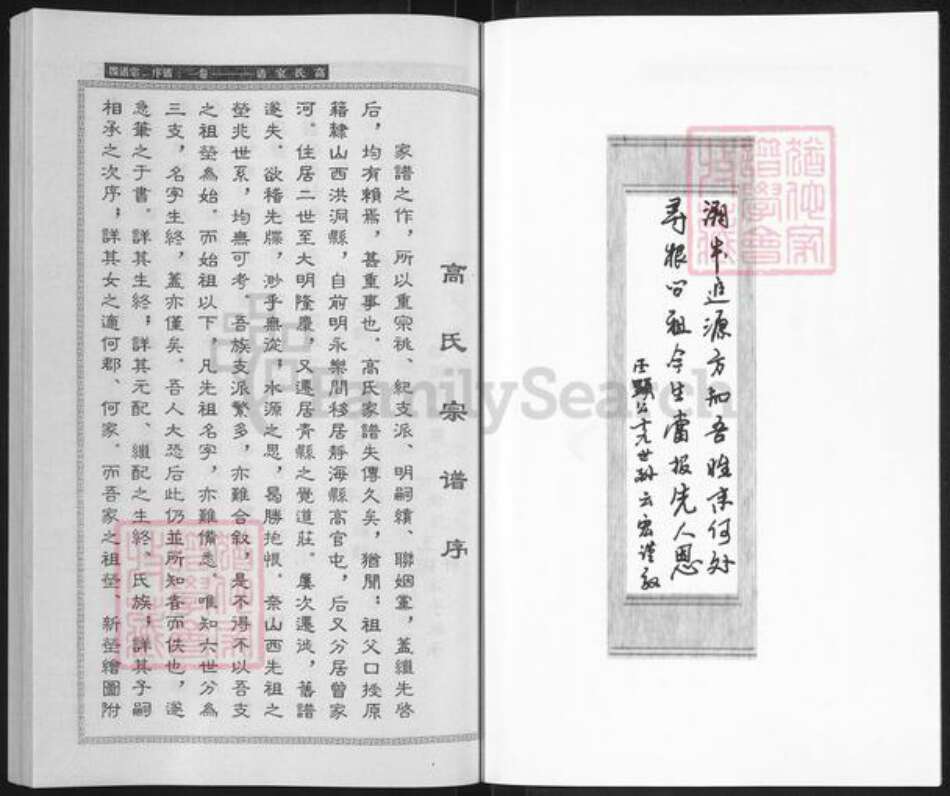 溯本追源方知吾姓来何处
寻根问祖今生当报先人恩
十九世孙云宏谨启
高氏宗谱序
家譜之作，所以重宗祧、紀支派、明嗣績、聯姻黨，蓋繼先啓
后，均有賴焉，甚重事也。高氏家譜失傳久矣，猶聞：祖父口授原
籍隸山西洪洞縣，自前明永樂間移居靜海縣高官屯，后又分居曾家
河。住居二世至大明隆慶，又遷居青縣之覺道莊。屢次遷徙，舊譜
遂失。欲稽先牒，渺乎無從，水源之思，曷勝抱恨。奈山西先祖之
塋兆世系，均無可考。吾族支派繁多，亦難合叙，是不得不以吾支
之祖塋為始。而始祖以下，凡先祖名字，亦難備悉。唯知六世分為
三支，名字生終，蓋亦僅矣。吾人大恐后此仍並所知者而佚也，遂
急筆之于書。詳其生終；詳其元配、繼配之生終、氏族；詳其子嗣
相承之次序；詳其女之適何郡、何家。而吾家之祖塋、新塋繪圖附
高氏家譜
卷一
譜序
猶他家譜學會
FamilySearch